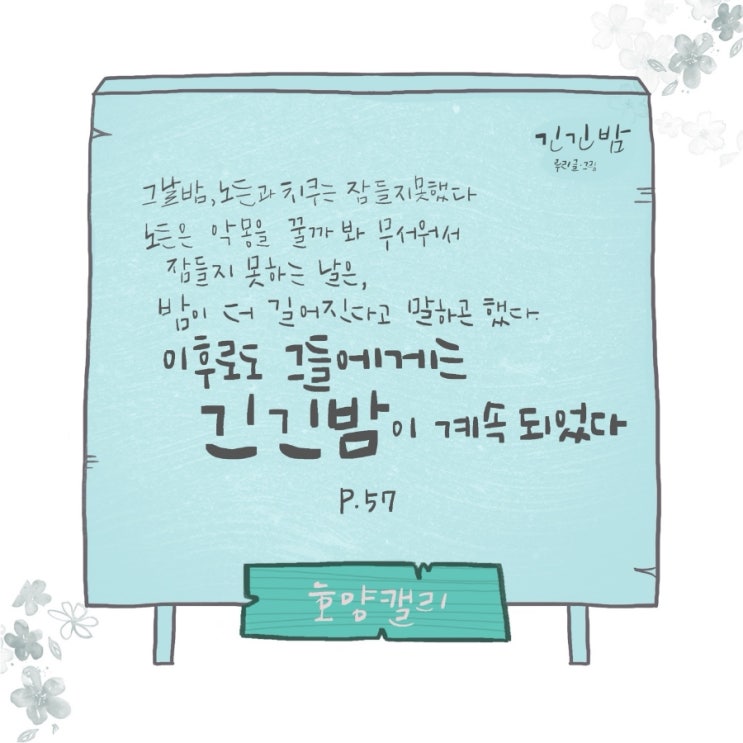 긴긴밤
루리 글·그림
그날밤, 노든과 치쿠는 잠들지못했다
노든은 악몽을 꿀까 봐 무서워서
잠들지 못하는 날은,
밤이 더 길어진다고 말하곤 했다.
이후로도 그들에게는
긴긴밤이 계속 되었다
P.57
호양캘리